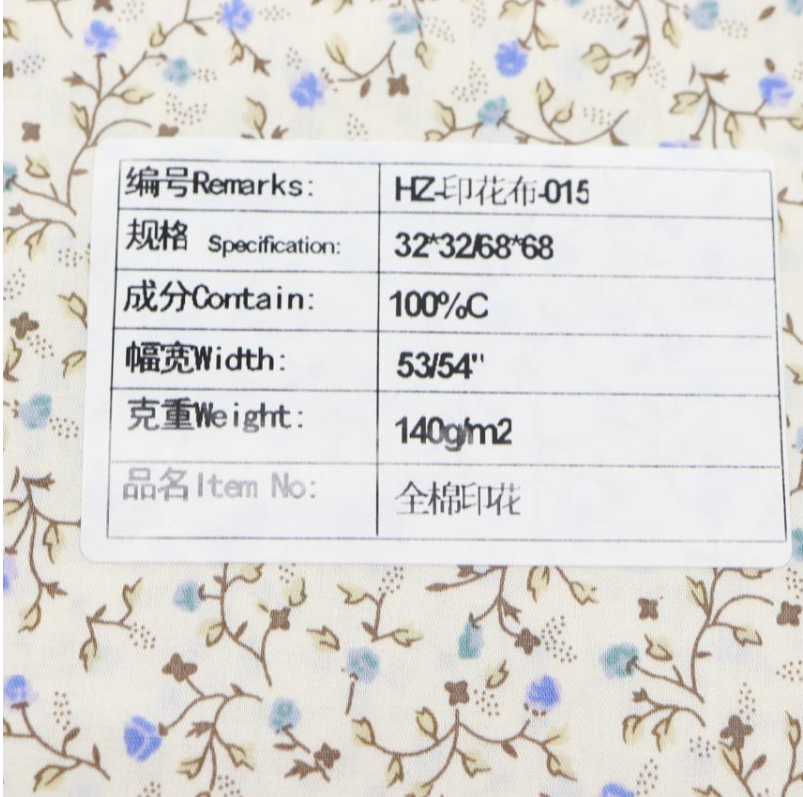 编号Remarks: HZ-印花布-015
规格 Specification: 32*32/68*68
成分Contain: 100%C
幅宽Width: 53/54"
克重Weight: 140g/m2
品名Item No: 全棉印花